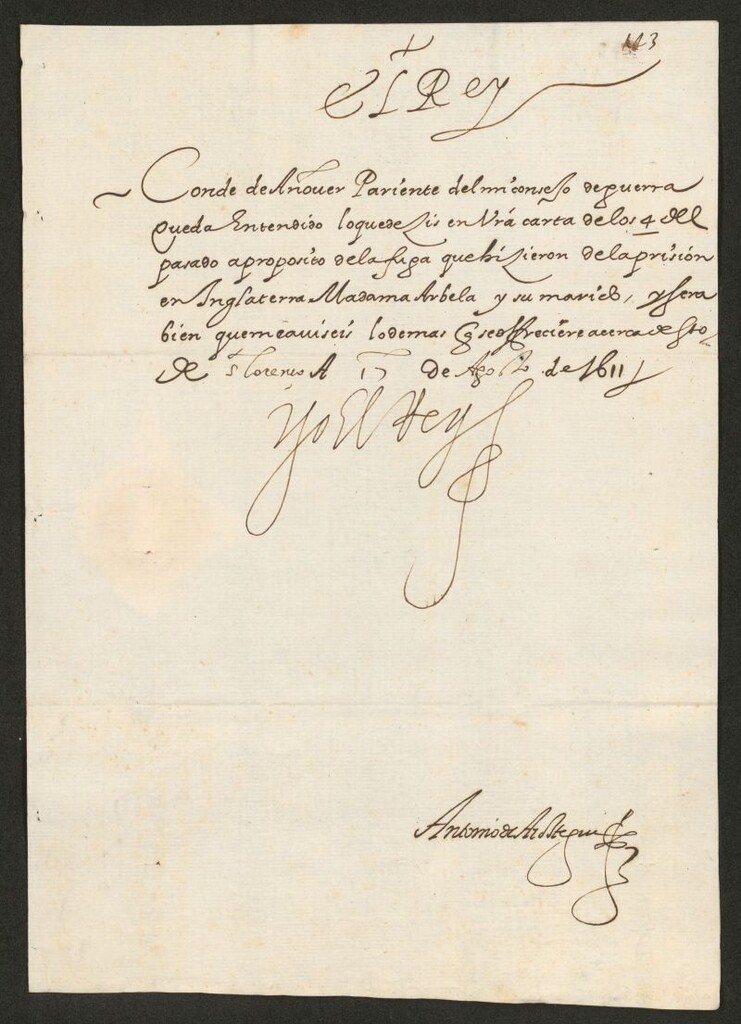 113
El Rey
Conde de Añover Pariente del mi conseJo de guerra
queda Entendido lo que deZis en Vrã carta de los 4 del
pasado a proposito de la fuga que hiZieron de la prisión
en Inglaterra Madama Arbela y su marido, y sera
bien que me aviseis lo demas q̃ se offreciere acerca desto
De S. Lorenço A 17 de Agosto de 1611
Yo El Rey
Antonio de Aroztegui